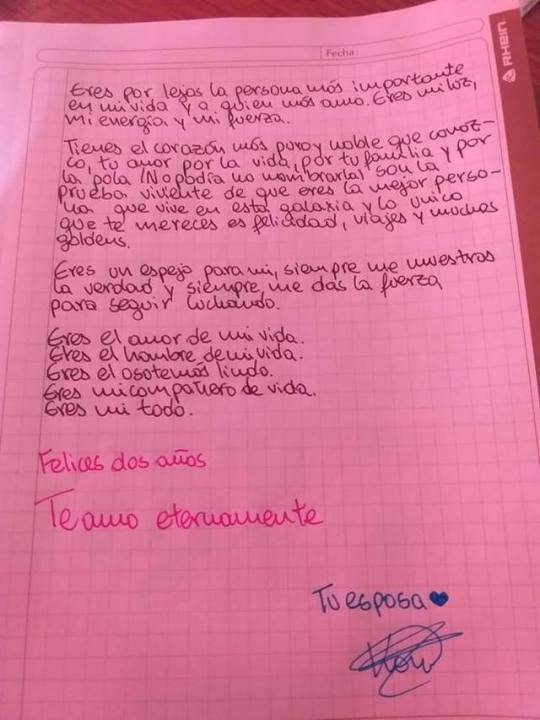 RHEIN
Fecha:
Eres por lejos la persona más importante
en mi vida y a quien más amo. Eres mi luz,
mi energía y mi fuerza.
Tienes el corazón más puro y noble que conoz-
co, tu amor por la vida, por tu familia y por
la pola (No podía no nombrarla) son la
prueba viviente de que eres la mejor perso-
na que vive en esta galaxia y lo único
que te mereces es felicidad, viajes y muchos
goldens.
Eres un espejo para mi, siempre me muestras
la verdad y siempre me das la fuerza
para seguir luchando.
Eres el amor de mi vida.
Eres el hombre de mi vida.
Eres el osote más lindo.
Eres mi compañero de vida.
Eres mi todo.
Felices dos años
Te amo eternamente
Tu esposa